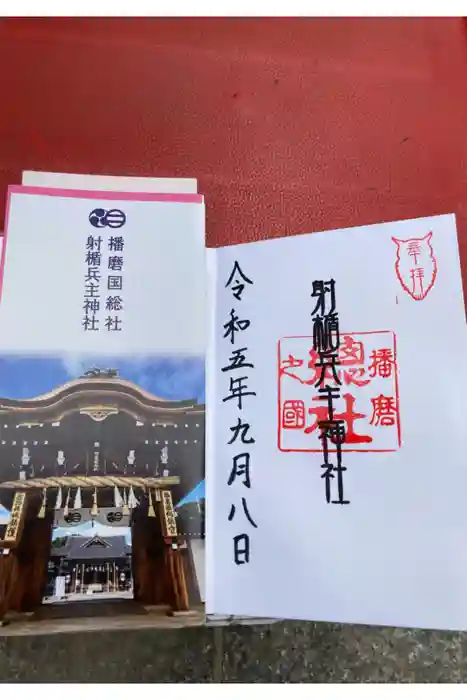 播磨国総社
射楯兵主神社
奉拝
播磨
國總社
之
射楯兵主神社
令和五年九月八日